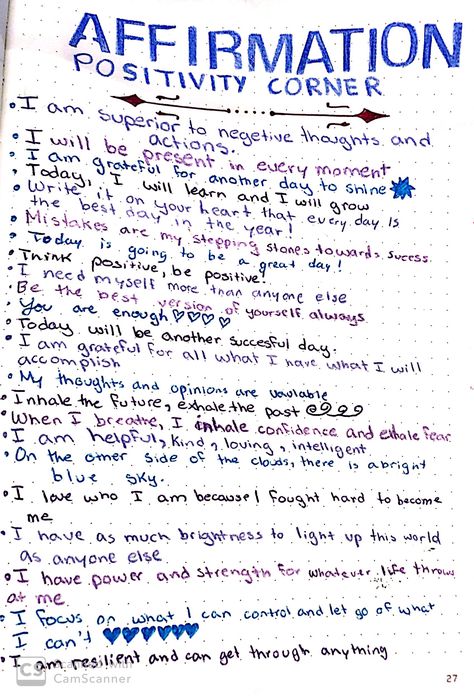 AFFIRMATION
POSITIVITY CORNER
• I am superior to negetive thoughts and
actions.
• I will be present in every moment
• I am grateful for another day to shine
• Today, I will learn and I will grow
• Write it on your heart that every day is
the best day in the year!
• Mistakes are my stepping stones towards success
• Today is going to be a great day!
• Think positive, be positive!
• I need myself more than anyone else
• Be the best version of yourself always
• You are enough ♡♡♡♡
• Today will be another succesful day.
• I am grateful for all what I have what I will
accomplish
• My thoughts and opinions are
• Inhale the future, exhale the past
• When I breathe, I inhale confidence and exhale fear
• I am helpful, kind, loving, intelligent
• On the other side of the clouds, there is a bright
blue sky.
• I love who I am because I fought hard to become
me
• I have as much brightness to light up this world
as anyone else
• I have power and strength for whatever life throws
at me
• I focus on what I can control and let go of what
I can't ♥♥♥♥♥♥
• I am resilient and can get through anything
27
CS CamScanner